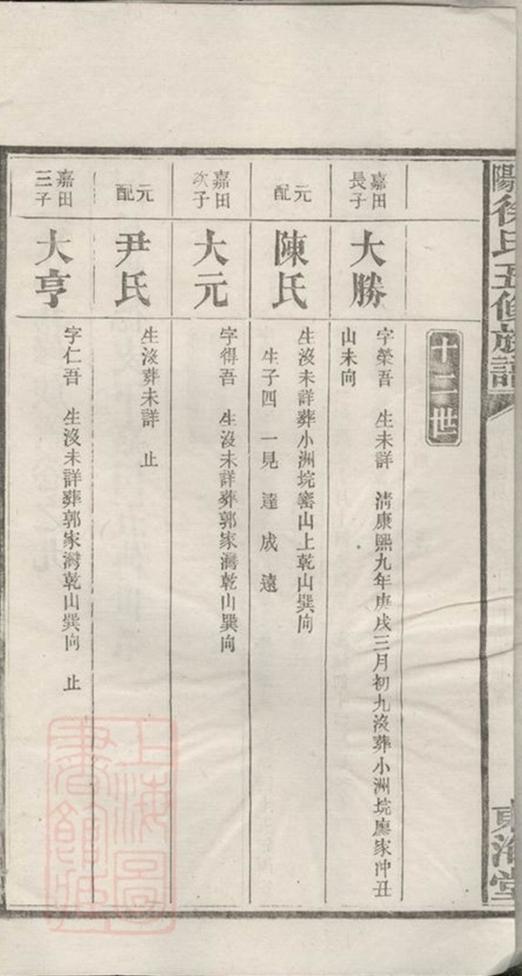 陽徐氏五修族譜
東海堂
十二世
嘉田長子
大勝
字榮吾 生未詳 清康熙九年庚戌三月初九沒葬小洲垸廖家冲丑
山未向
元配
陳氏
生沒未詳葬小洲垸寨山上乾山巽向
生子四 一見 達 成 遠
嘉田次子
大元
字得吾 生沒未詳葬郭家灣乾山巽向
元配
尹氏
生沒葬未詳 止
嘉田三子
大亨
字仁吾 生沒未詳葬郭家灣乾山巽向 止
上海圖書館藏